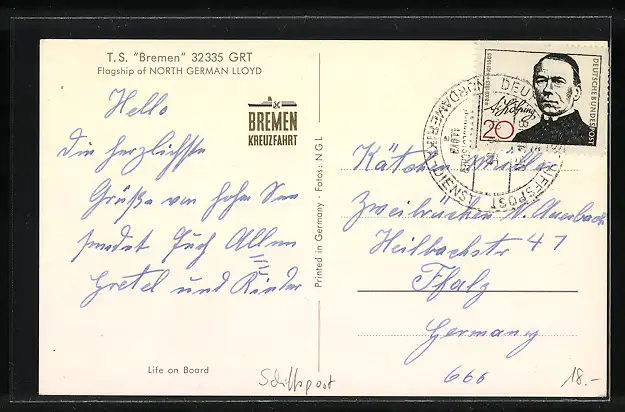 T.S. "Bremen" 32335 GRT
Flagship of NORTH GERMAN LLOYD
Hello
Die herzlichste
Grüße von hoher See
sendet Euch Allen
Gretel und Kinder
BREMEN
KREUZFAHRT
Life on Board
Printed in Germany · Fotos: NGL
DEUTSCHE BUNDESPOST
20
Kätchen Müller
Zweibrücken N. Auerbach
Heilbachstr 47
Pfalz
Germany
666
Schiffspost
18.-